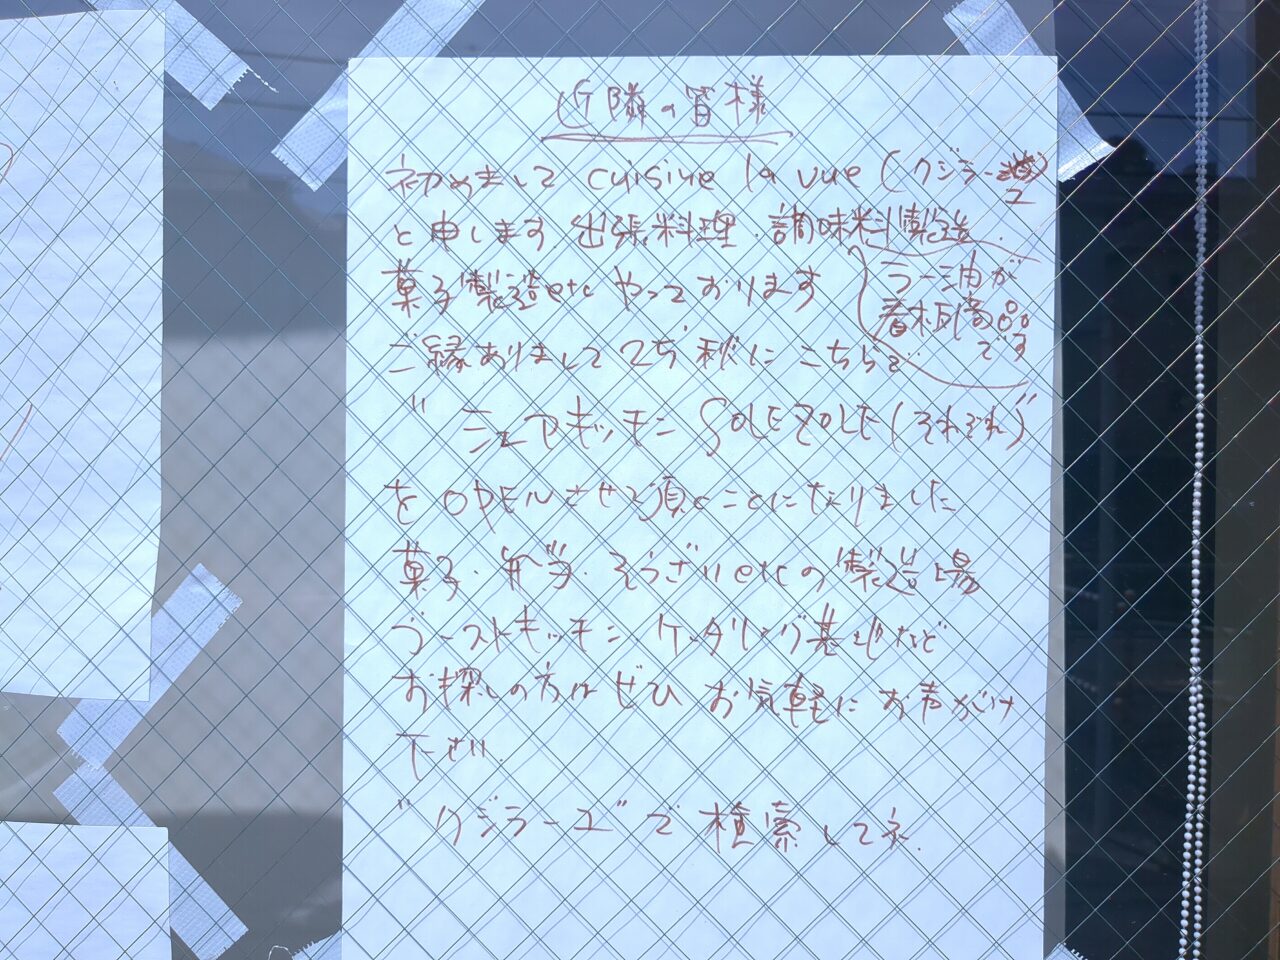 近隣の皆様
初めまして cuisine la vue (クジラーユ)
と申します 出張料理・調味料製造・
菓子製造etc やっております
ラー油が
看板商品
です
ご縁ありまして 25'秋に こちらで
"シェアキッチン SOLEZOLE(それぞれ)"
を OPENさせて頂くことになりました
菓子・弁当・そうざいetcの製造場
ゴーストキッチン、ケータリング基地など
お探しの方は ぜひ お気軽に お声がけ
下さい.
"クジラーユ"で 検索してネ.